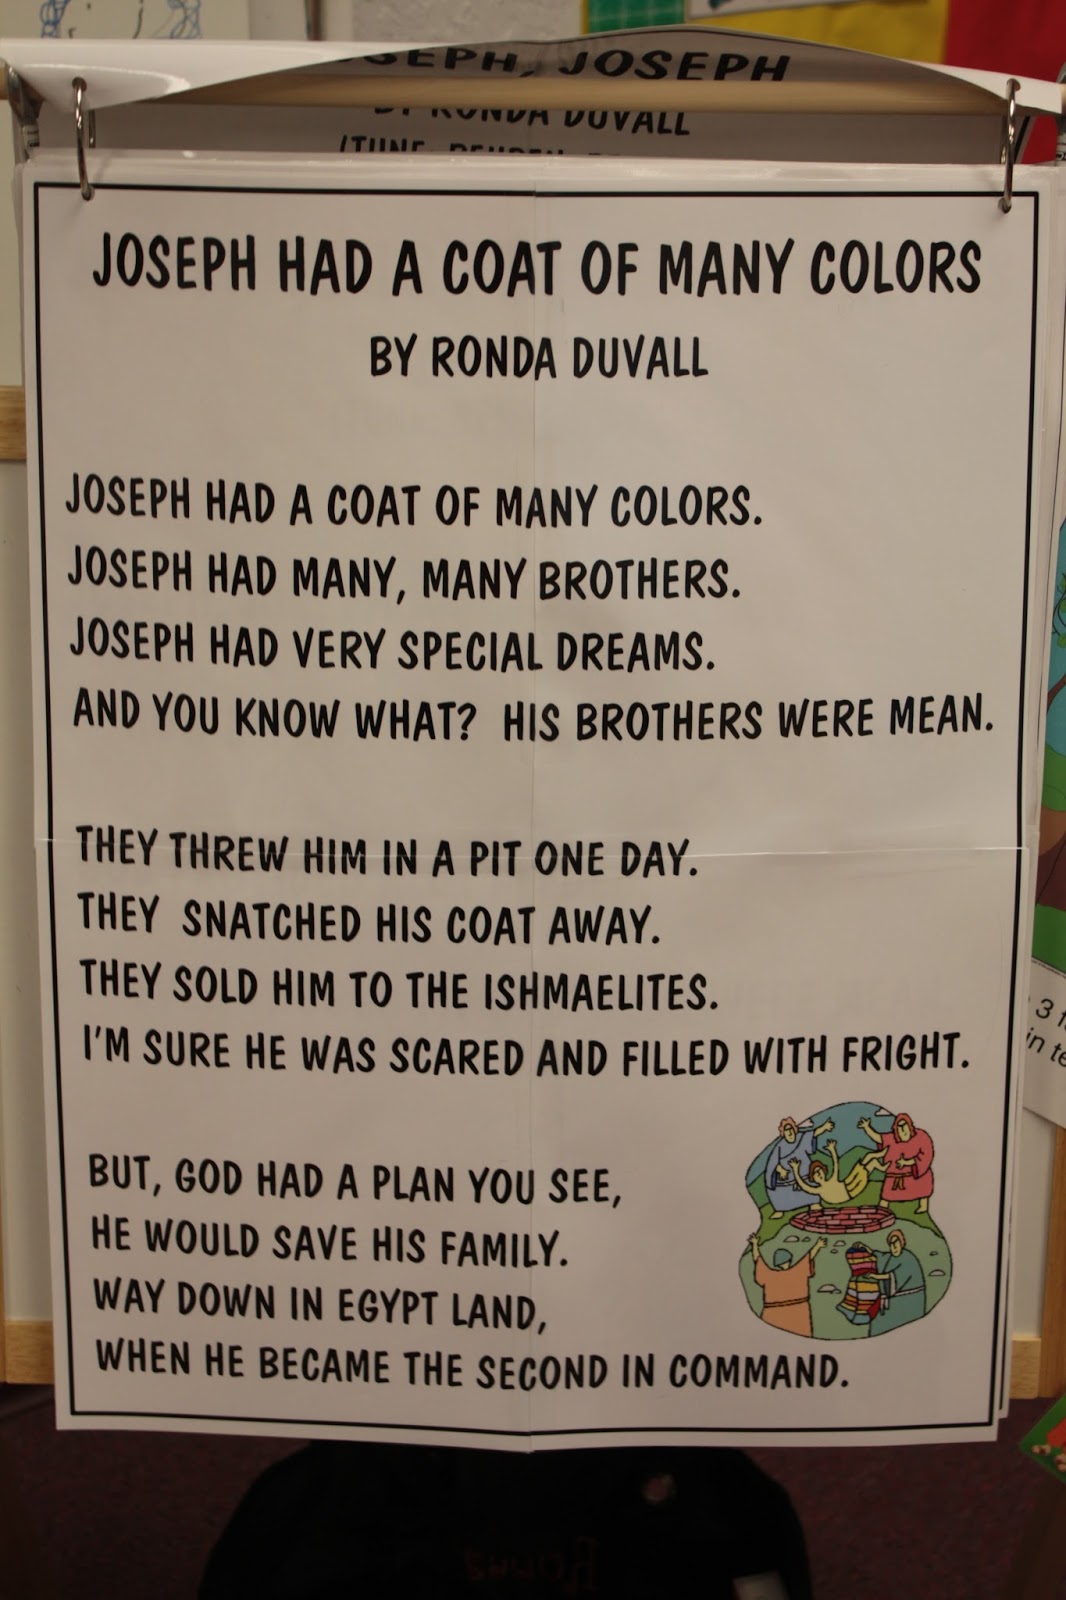 JOSEPH, JOSEPH
BY RONDA DUVALL
JOSEPH HAD A COAT OF MANY COLORS
BY RONDA DUVALL
JOSEPH HAD A COAT OF MANY COLORS.
JOSEPH HAD MANY, MANY BROTHERS.
JOSEPH HAD VERY SPECIAL DREAMS.
AND YOU KNOW WHAT? HIS BROTHERS WERE MEAN.
THEY THREW HIM IN A PIT ONE DAY.
THEY SNATCHED HIS COAT AWAY.
THEY SOLD HIM TO THE ISHMAELITES.
I'M SURE HE WAS SCARED AND FILLED WITH FRIGHT.
BUT, GOD HAD A PLAN YOU SEE,
HE WOULD SAVE HIS FAMILY.
WAY DOWN IN EGYPT LAND,
WHEN HE BECAME THE SECOND IN COMMAND.
3
in